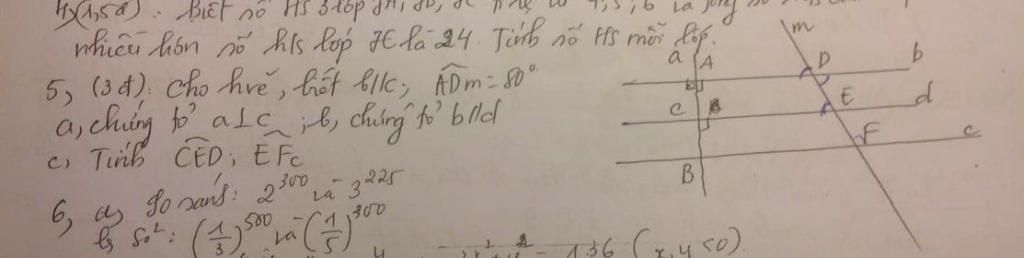 4, (1,5đ). Biết số HS 3 lớp
nhiều hơn số h/s lớp 7C là 24. Tính số HS mỗi lớp.
5, (3đ). Cho hvẽ, biết b//c; ADm = 80°
a, chứng tỏ a⊥c ; b, chứng tỏ b//d
c, Tính CED; EFc
6, a, So sánh: 2^300 và 3^225
b, So²: (1/3)^500 và (1/5)^300
136 (x,y<0)
m
a A D b
c E d
F c
B